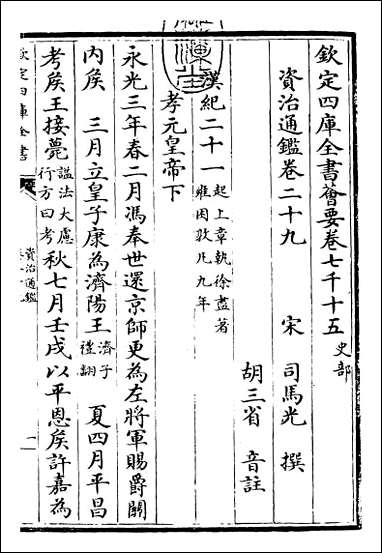 欽定四庫全書薈要卷七千十五 史部
資治通鑑卷二十九
宋 司馬光 撰
胡三省 音註
漢紀二十一 起上章執徐盡著雍困敦凡九年
孝元皇帝下
永光三年春二月馮奉世還京師更為左將軍賜爵關
內侯 三月立皇子康為濟陽王 濟子禮翻 夏四月平昌
考侯王接薨 諡法大慮行方曰考 秋七月壬戌以平恩侯許嘉為
欽定四庫全書
資治通鑑
一